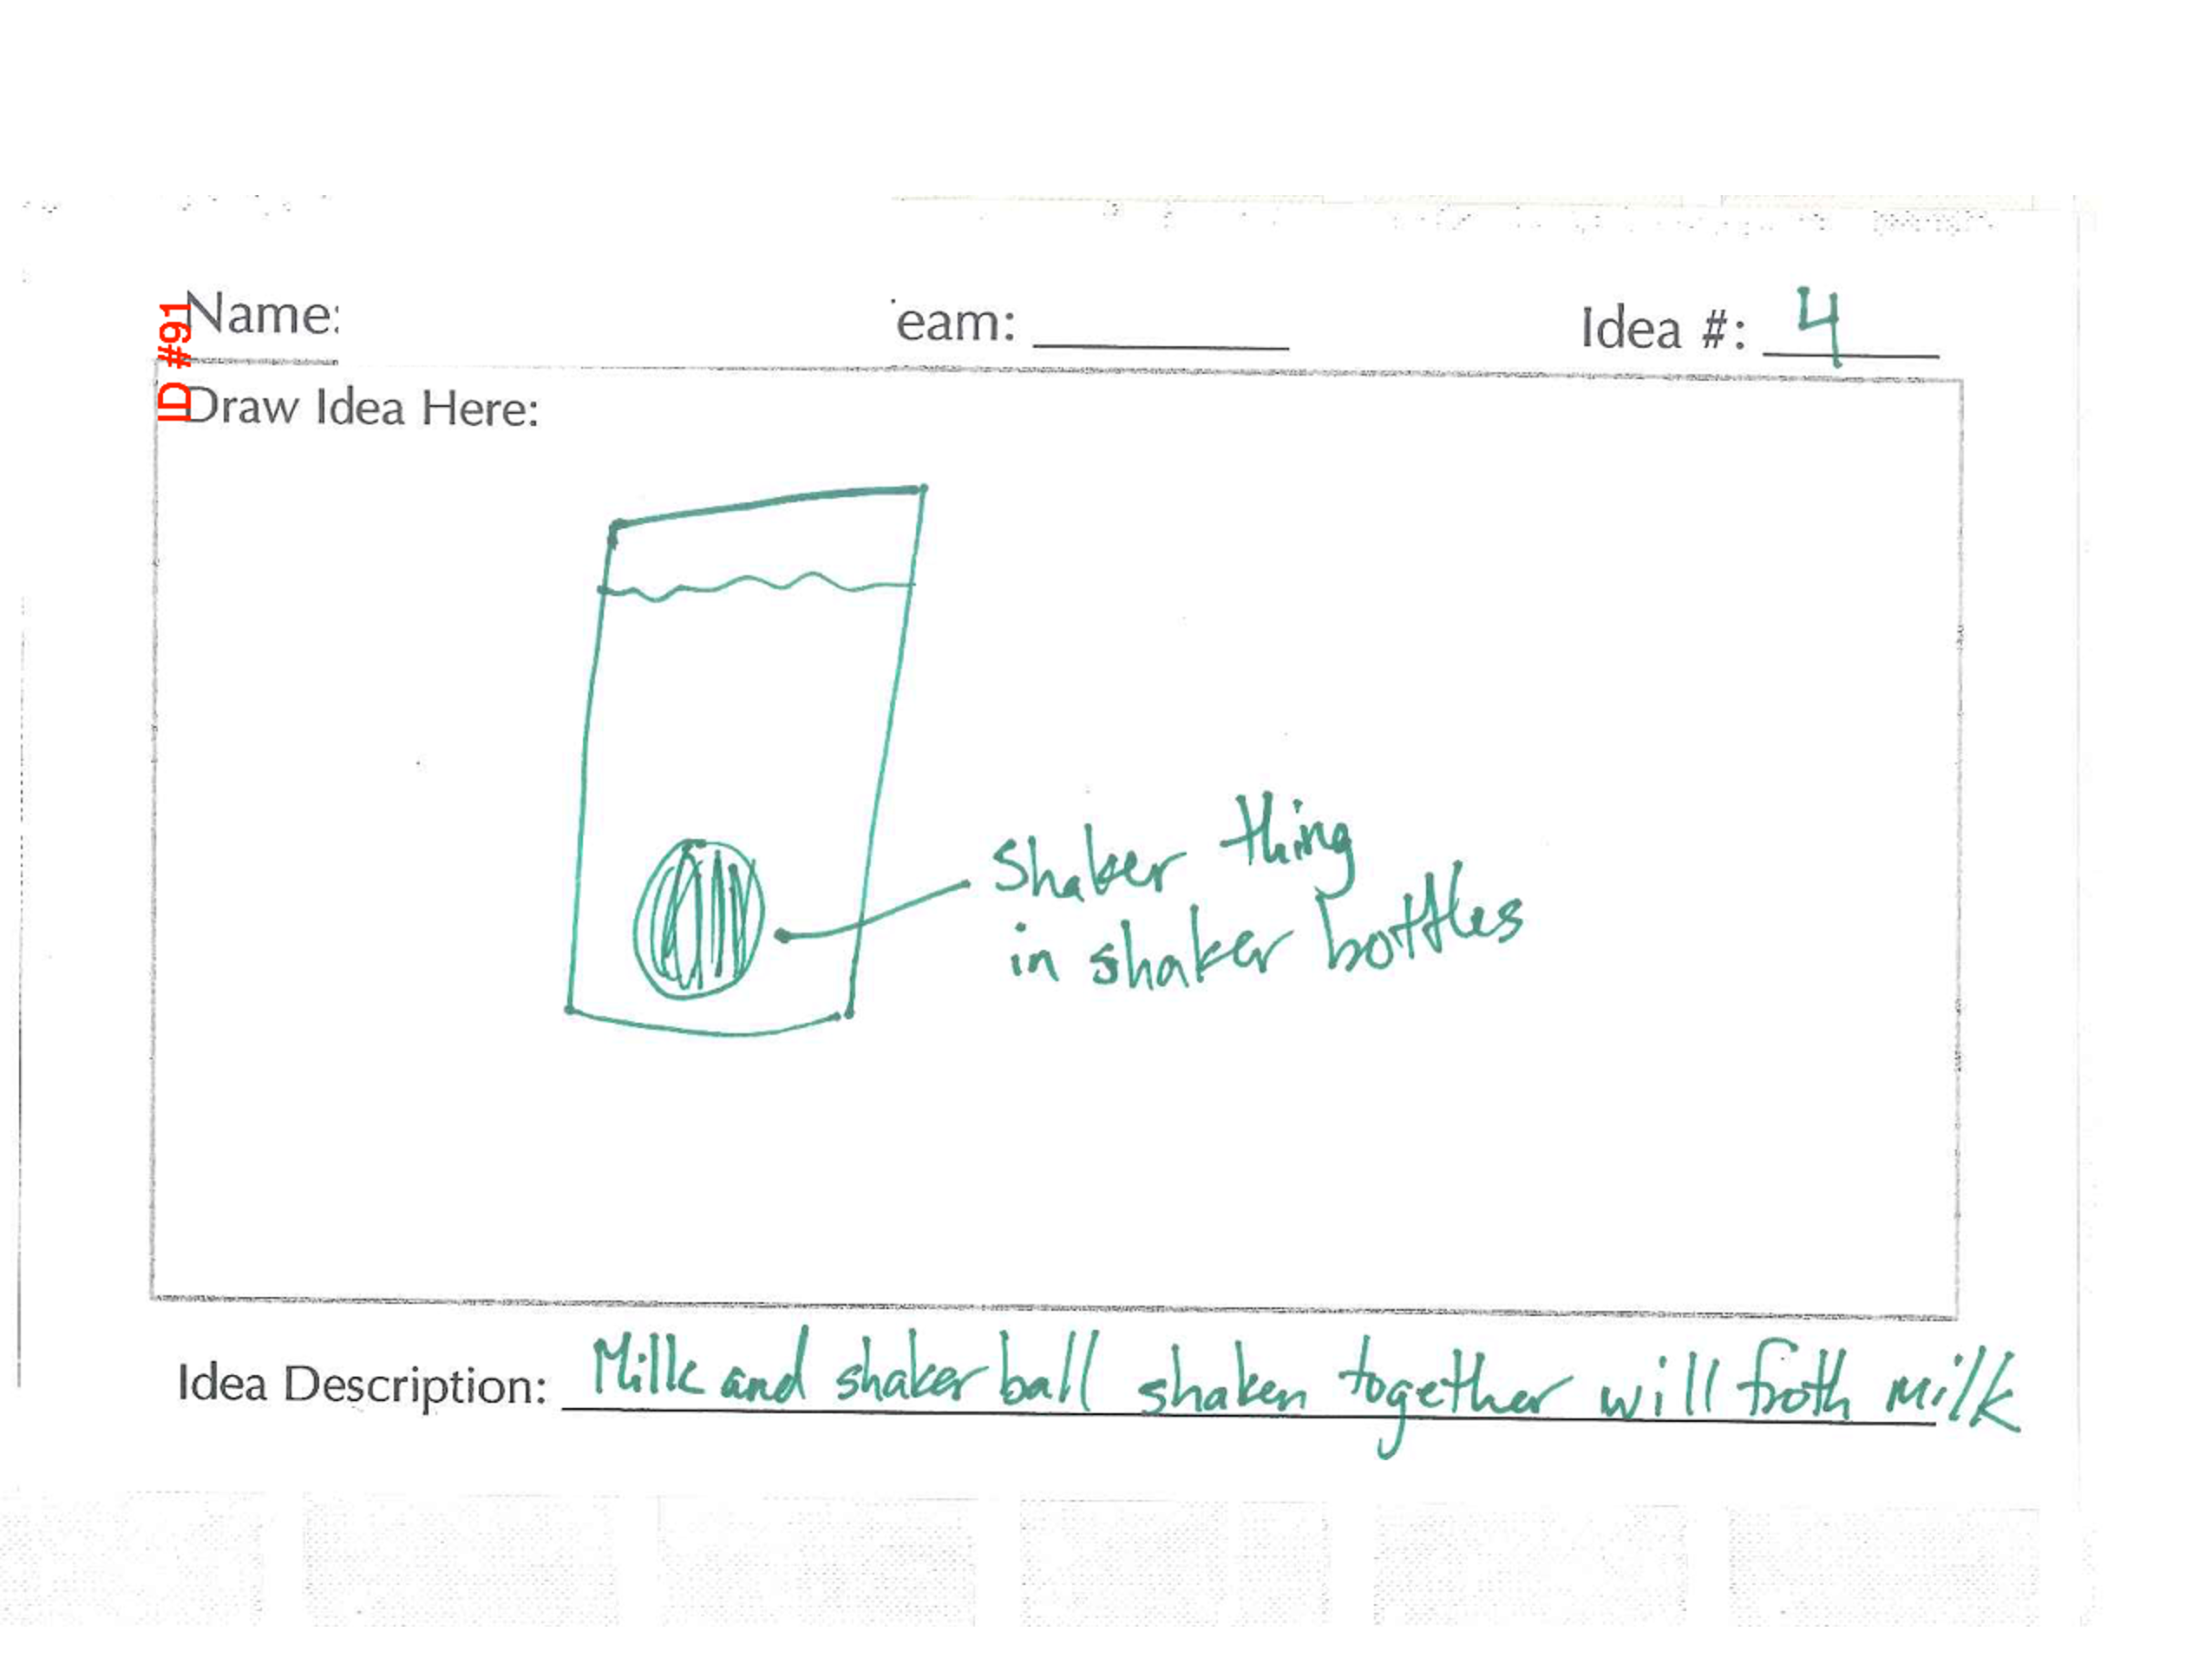 ID #91
Name:
eam:
Idea #: 4
Draw Idea Here:
Shaker thing
in shaker bottles
Idea Description: Milk and shaker ball shaken together will froth milk